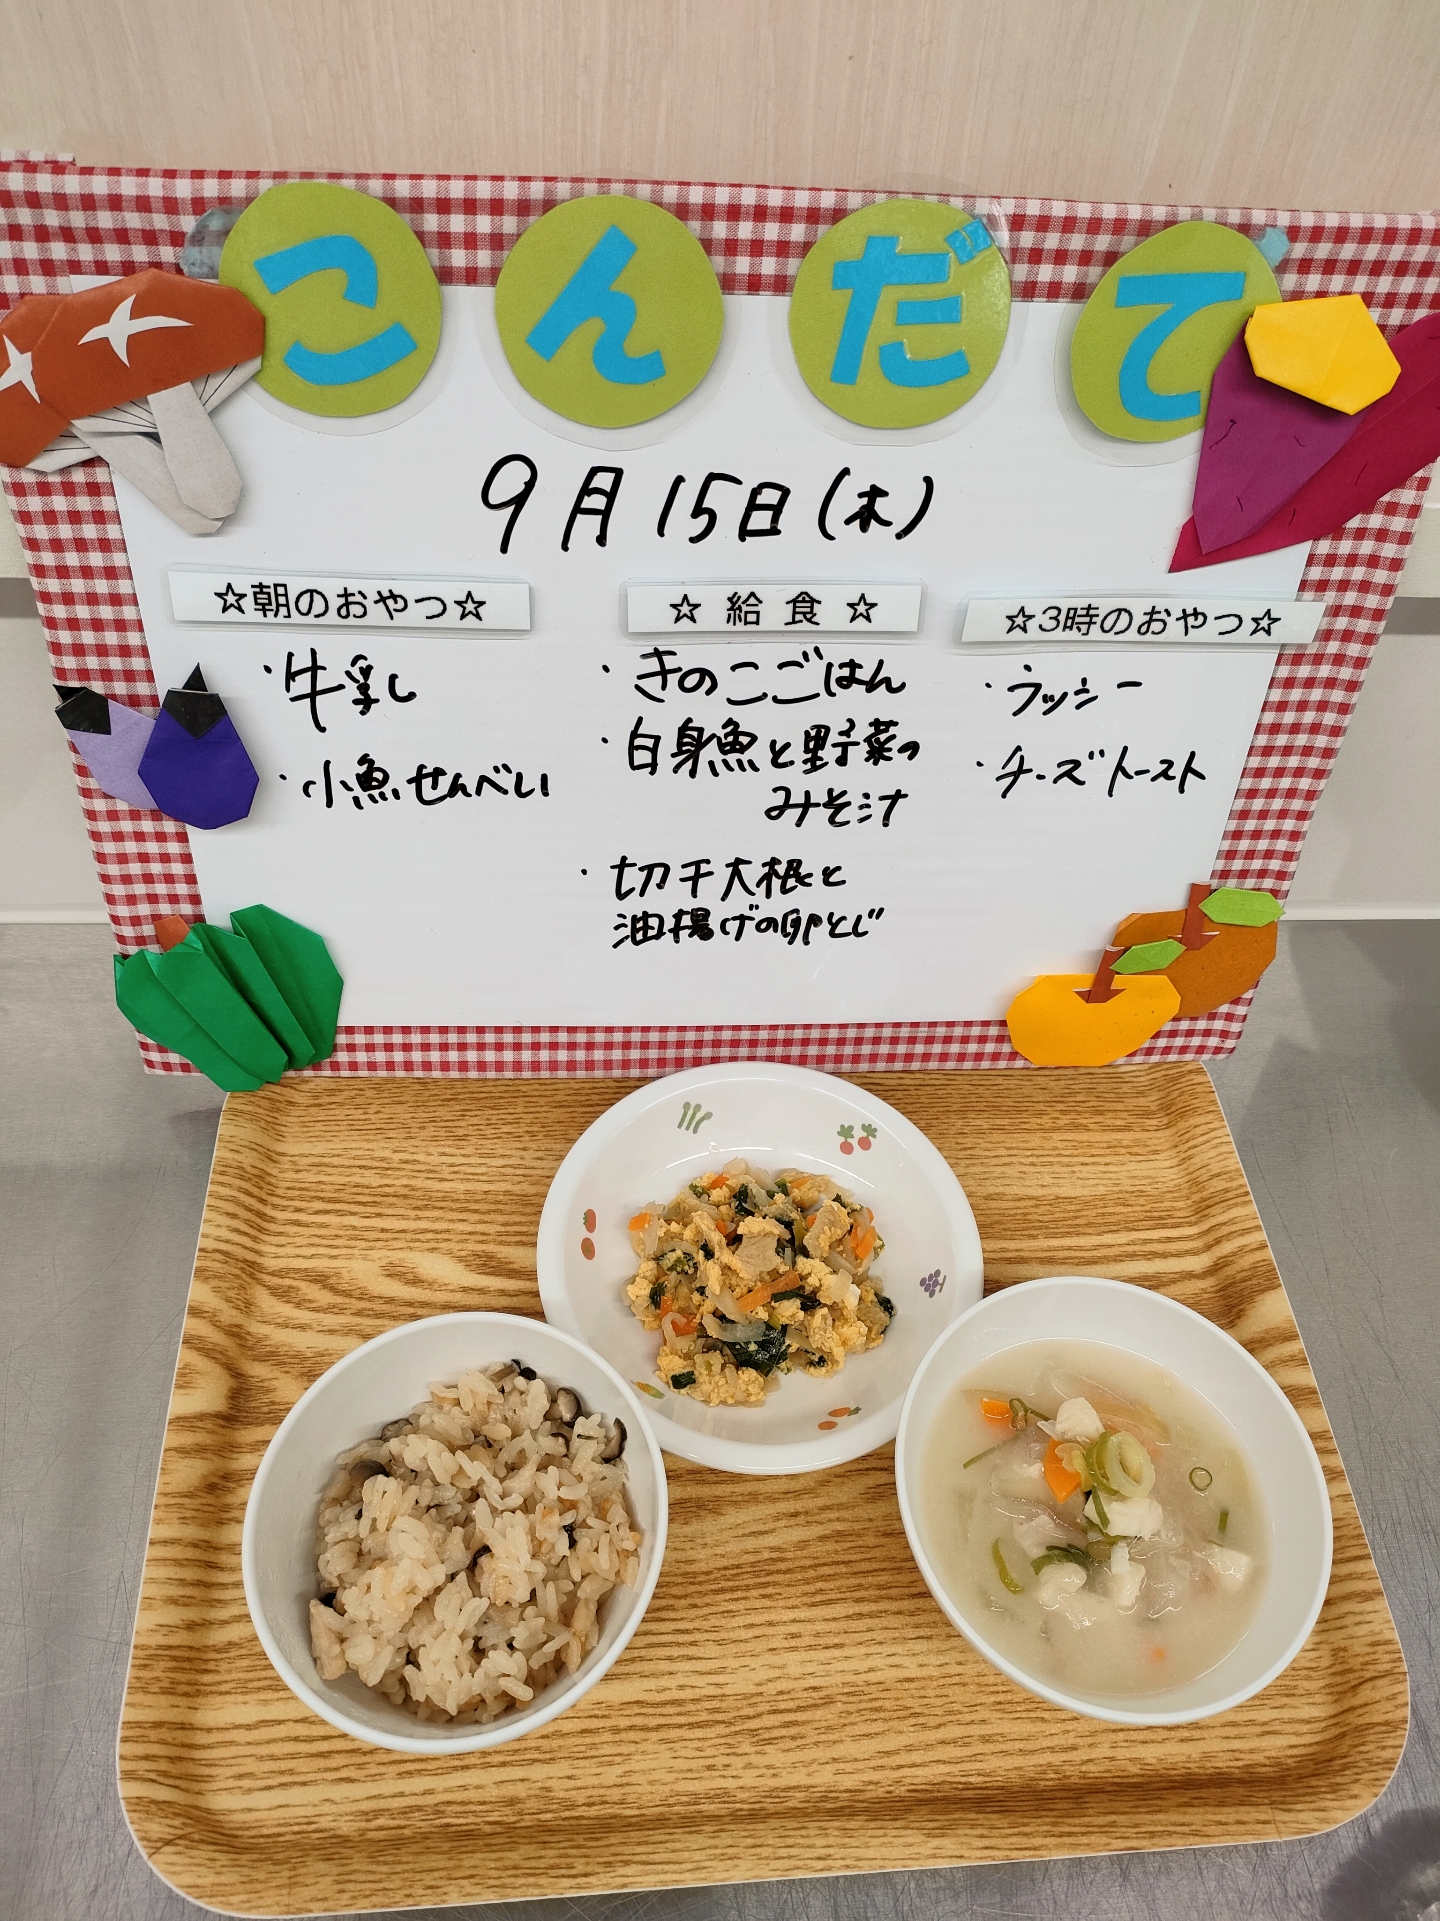 こんだて
9月15日(木)
☆朝のおやつ☆
・牛乳
・小魚せんべい
☆給食☆
・きのこごはん
・白身魚と野菜の
みそ汁
・切干大根と
油揚げの卵とじ
☆3時のおやつ☆
・ラッシー
・チーズトースト